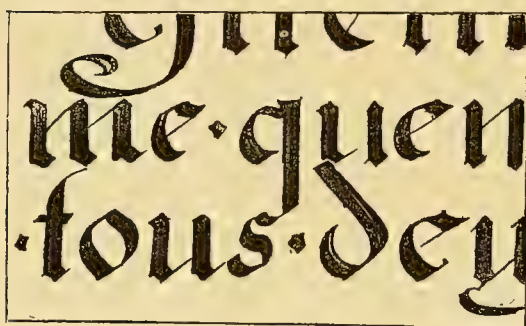 me·quen
·fous·dey